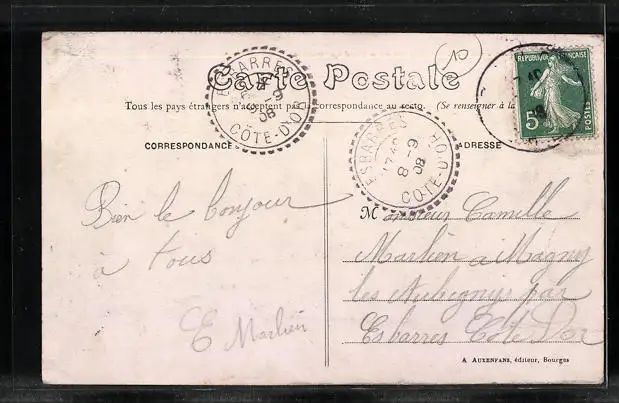 10
Carte Postale
RÉPUBLIQUE FRANÇAISE
5c
POSTES
Tous les pays étrangers n'acceptent pas la correspondance au recto. (Se renseigner à la
CORRESPONDANCE
ADRESSE
ESBARRES
8-9
08
CÔTE-D'OR
ESBARRES
8-9
08
CÔTE-D'OR
Bien le bonjour
à tous
E Marlien
Monsieur Camille
Marlien à Magny
les Aubignys par
Esbarres Côte d'or
A AUXENFANS, éditeur, Bourges